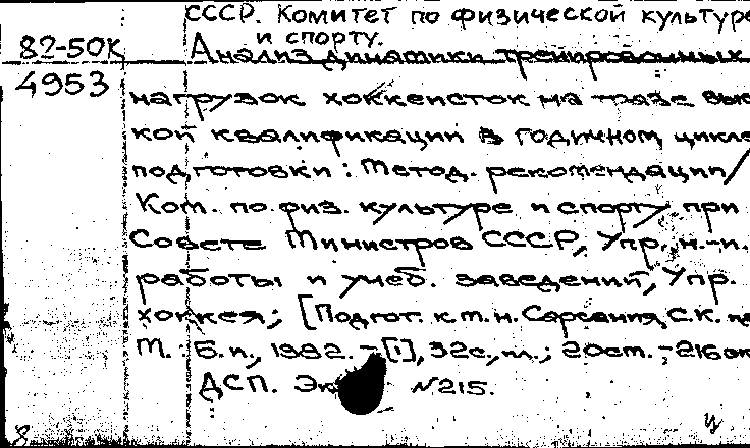 СССР. Комитет по физической культуре
и спорту.
82-50К Анализ динамики тренировочных
4953
нагрузок хоккеисток на траве высо
кой квалификации в годичном цикле
подготовки: Метод. рекомендации/
Ком. по физ. культуре и спорту при
Совете Министров СССР, Упр. н.-и.
работы и учеб. заведений, Упр.
хоккея; [Подгот. к.п.н. С.К.
М.: Б.и., 1982. - [1], 32с., ил.; 20см. -
ДСП. Эк № 215.